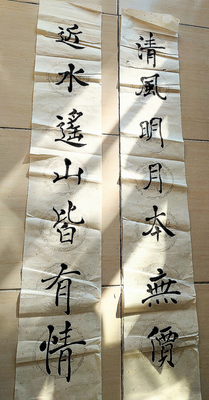 清風明月本無價
近水遙山皆有情